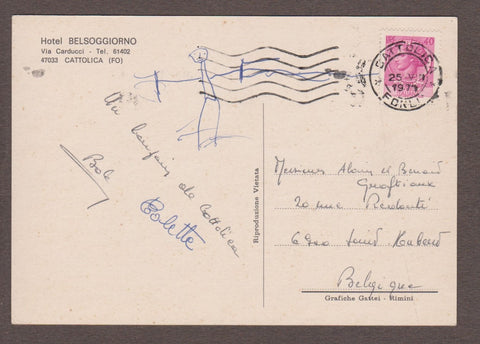 Hotel BELSOGGIORNO
Via Carducci - Tel. 61402
47033 CATTOLICA (FO)
40
CATTOLICA
25
1971
FORLI
Un bonjour de Cattolica
Bob
Colette
Riproduzione Vietata
Messieurs Alain et Bernard
20 rue
6900 Hubert
Belgique
Grafiche Gattei - Rimini